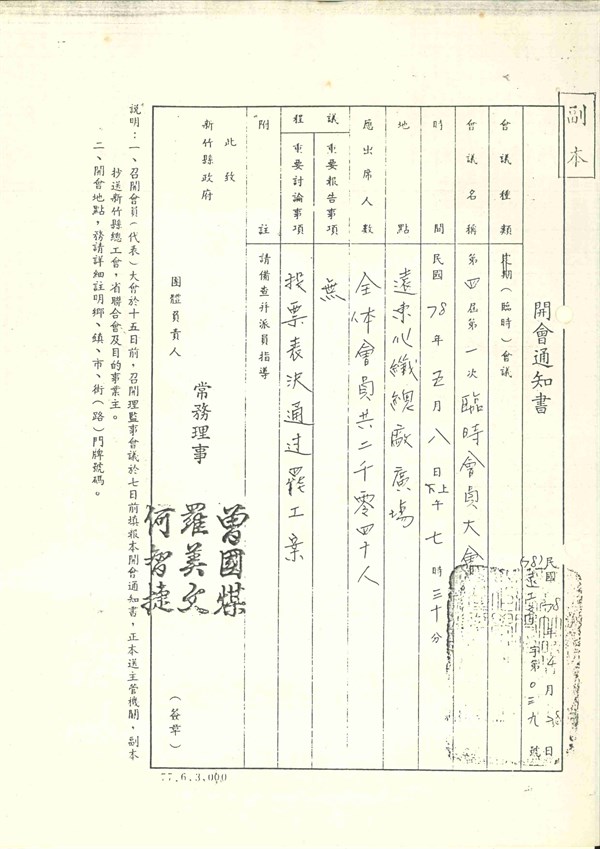 副本
開會通知書
民國78年4月28日
(78)遠工 字第0三九號
會議種類 定期(臨時)會議
會議名稱 第四屆第一次臨時會員大會
時間 民國78年五月八日上下午七時三十分
地點 遠東化纖總廠廣場
應出席人數 全体會員共二千零四十人
議程 重要報告事項 無
重要討論事項 投票表決通过罷工案
附註 請備查并派員指導
此致
新竹縣政府
團體負責人 常務理事 曾國煤
羅美文
何智捷 (簽章)
說明:一、召開會員(代表)大會於十五日前,召開理監事會議於七日前填報本開會通知書,正本送主管機關,副本
抄送新竹縣總工會,省聯合會及目的事業主。
二、開會地點,務請詳細註明鄉、鎮、市、街(路)門牌號碼。
77.6.3,000